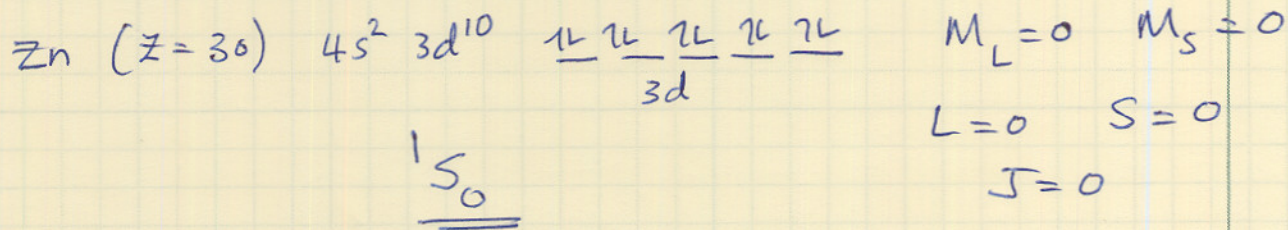 Zn (Z=30) 4s² 3d¹⁰ ⇅ ⇅ ⇅ ⇅ ⇅ M_L=0 M_S=0
3d
L=0 S=0
¹S₀ J=0